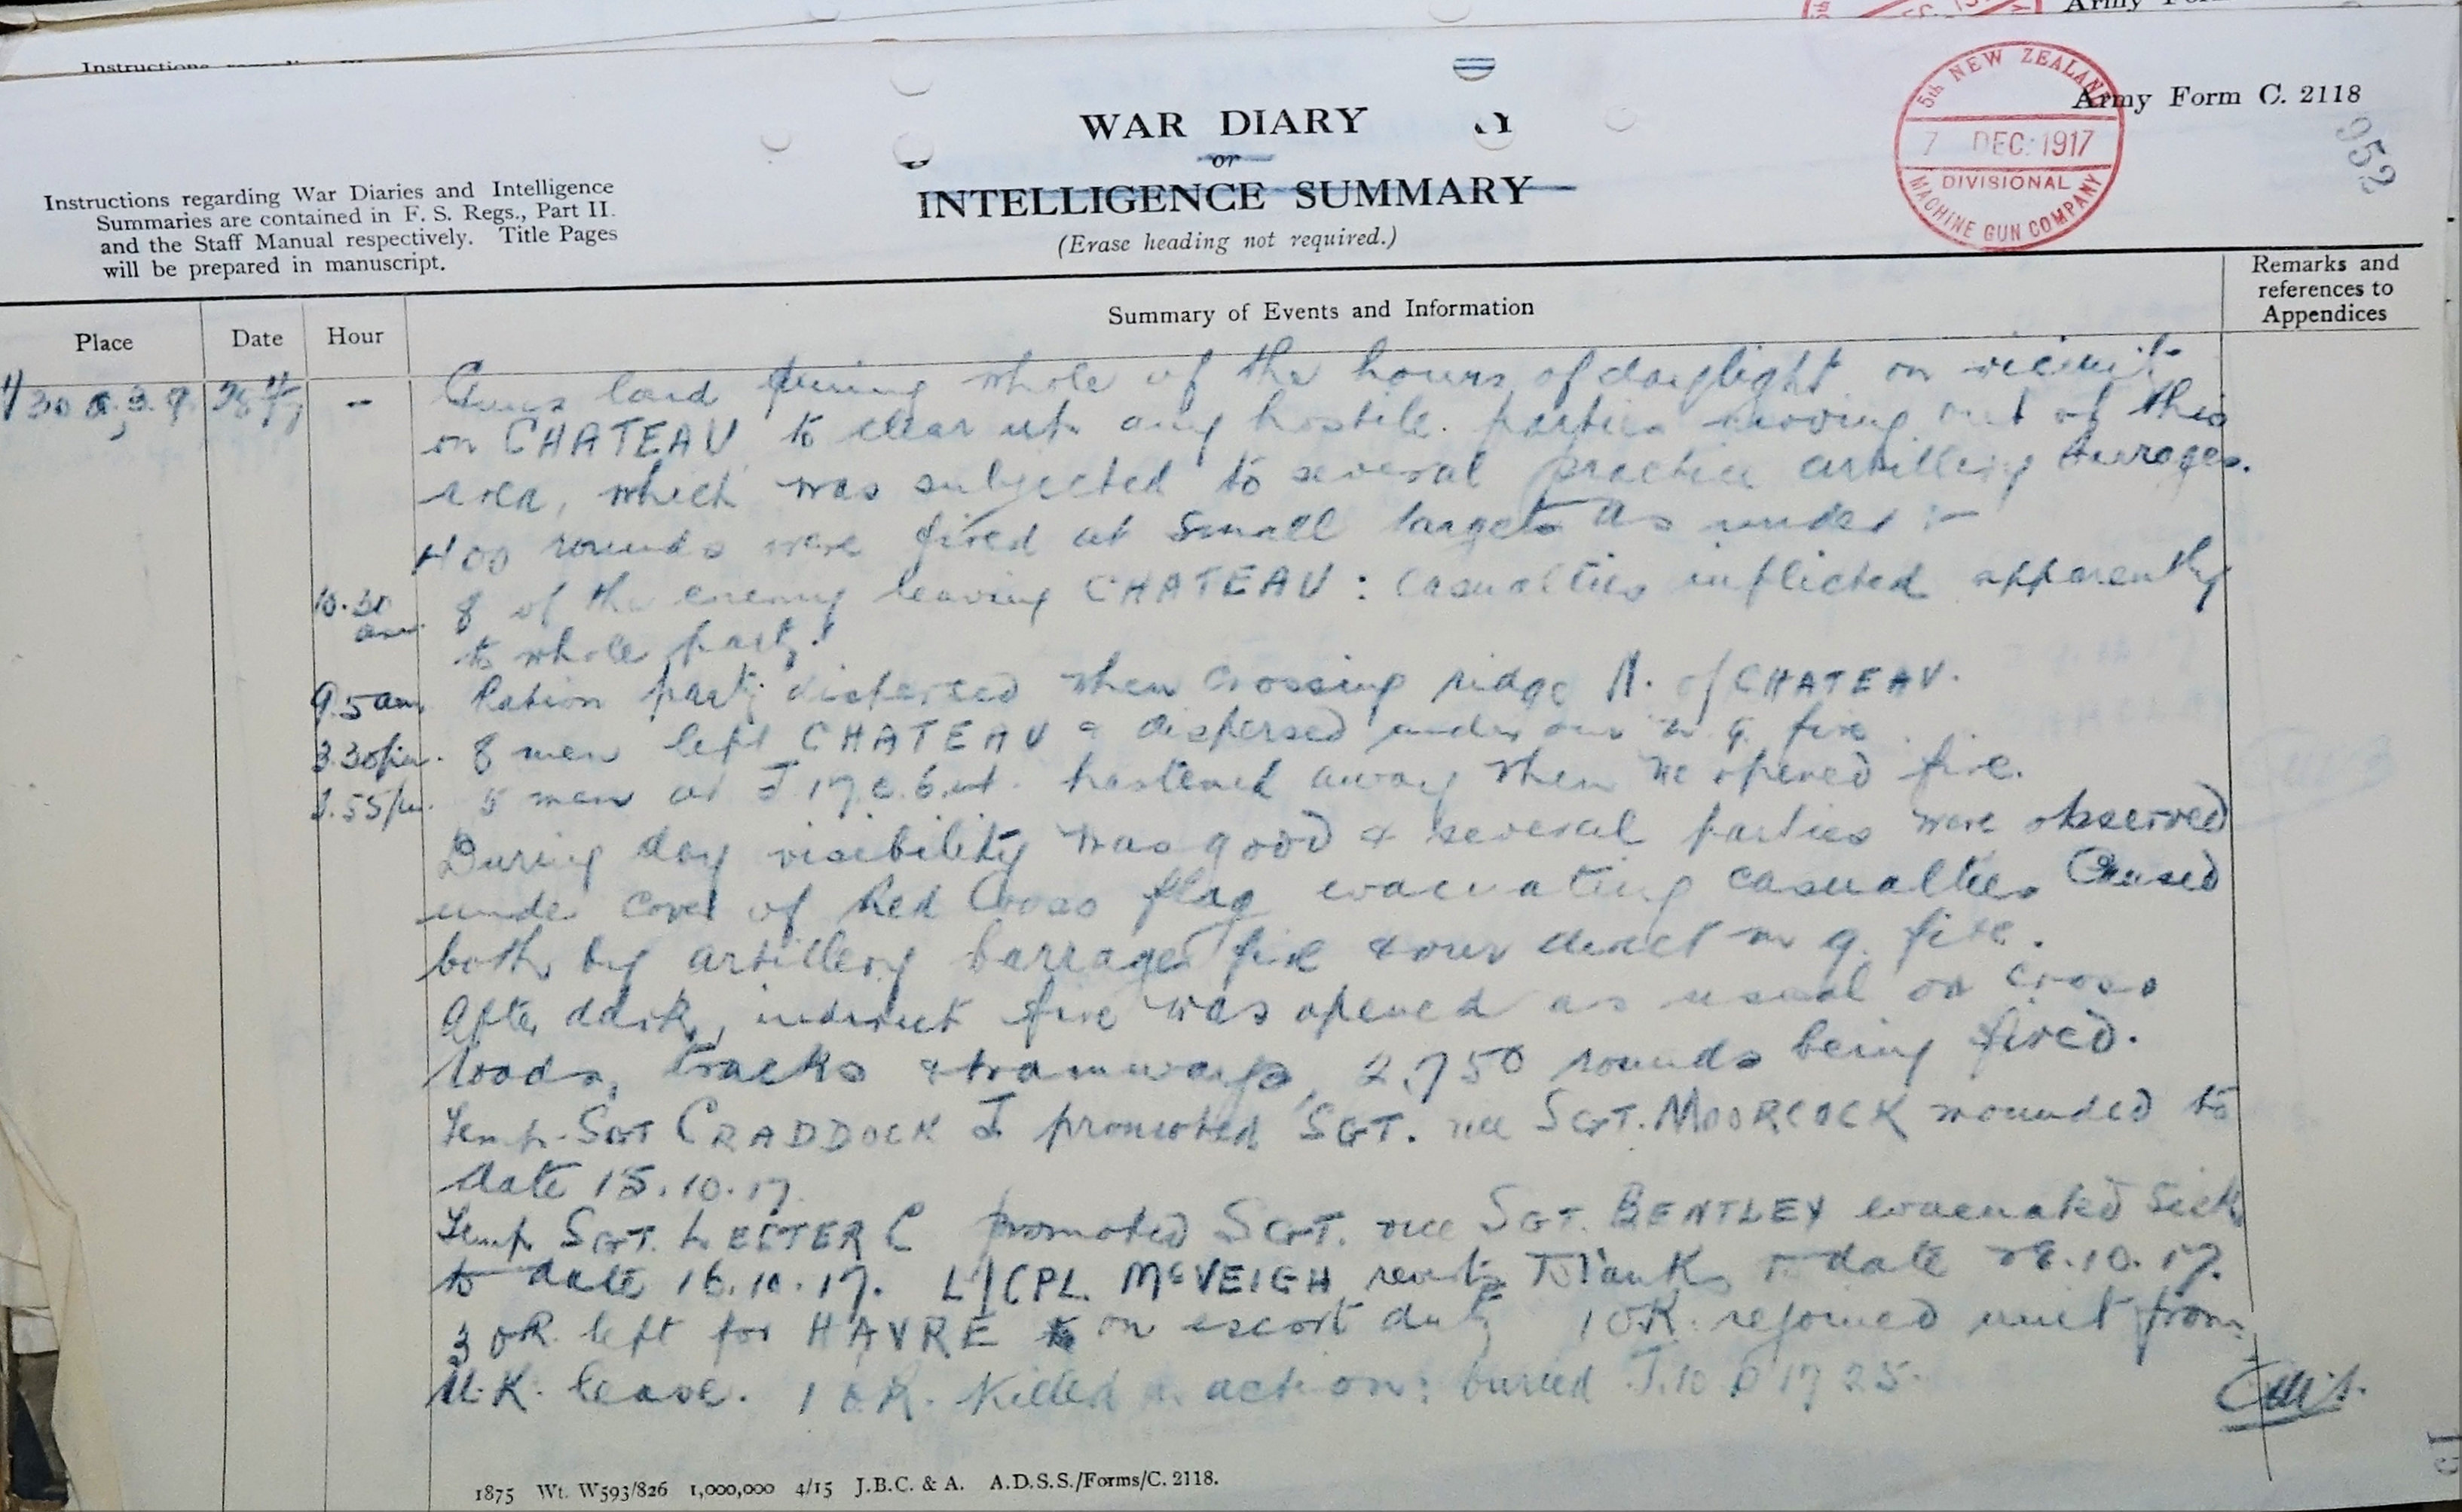 Instructions
Army
Army Form C. 2118
952
5th NEW ZEALAND
7 DEC. 1917
DIVISIONAL
MACHINE GUN COMPANY
WAR DIARY
or
INTELLIGENCE SUMMARY
(Erase heading not required.)
Instructions regarding War Diaries and Intelligence
Summaries are contained in F. S. Regs., Part II.
and the Staff Manual respectively. Title Pages
will be prepared in manuscript.
Place Date Hour Summary of Events and Information Remarks and
references to
Appendices
Guns laid during whole of the hours of daylight on
on CHATEAU to clear up any hostile parties moving out of this
area, which was subjected to several practice artillery barrages.
400 rounds were fired at small targets as under :-
10.30 am 8 of the enemy leaving CHATEAU : Casualties inflicted apparently
to whole party.
9.5 am Ration party dispersed when crossing ridge N. of CHATEAU.
3.30 pm. 8 men left CHATEAU & dispersed under our m. g. fire.
.55 pm. 5 men at J 17. c. hastened away when we opened fire.
During day visibility was good & several parties were observed
under cover of Red Cross flag evacuating casualties caused
both by artillery barrage fire & our direct m g. fire.
After dark, indirect fire was opened as usual on cross
roads, tracks & tramways, 2,750 rounds being fired.
Temp. SGT CRADDOCK J promoted SGT. vice SGT. MOORCOCK wounded to
date 15.10.17.
Temp SGT. LESTER C promoted SGT. vice SGT. BENTLEY evacuated sick
to date 16.10.17. L/CPL. McVEIGH reverts to ranks to date 28.10.17.
3 OR. left for HAVRE on escort duty 1 OR. rejoined unit from
U.K. leave. 1 O.R. Killed in action: buried J.10 D 17 25.
1875 Wt. W593/826 1,000,000 4/15 J.B.C. & A. A.D.S.S./Forms/C. 2118.